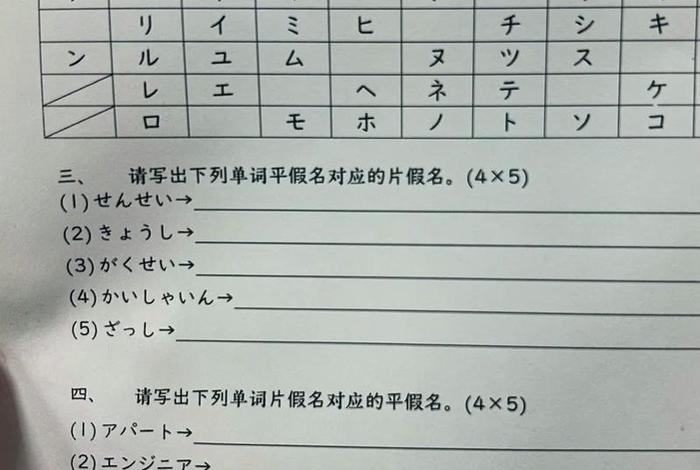 リ イ ミ ヒ チ シ キ
ン ル ユ ム ヌ ツ ス
レ エ ヘ ネ テ ケ
ロ モ ホ ノ ト ソ コ
三、 请写出下列单词平假名对应的片假名。(4×5)
(1)せんせい→
(2)きょうし→
(3)がくせい→
(4)かいしゃいん→
(5)ざっし→
四、 请写出下列单词片假名对应的平假名。(4×5)
(1)アパート→
(2)エンジニア→